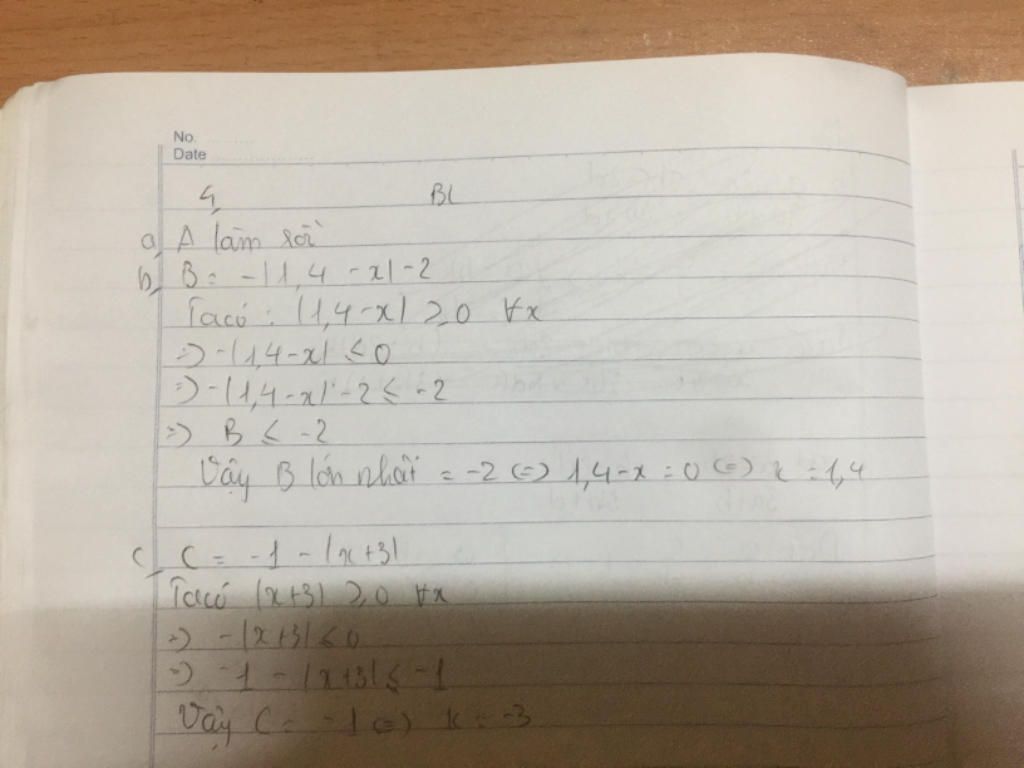 No.
Date
4, BL
a, A làm rồi
b, B = -|1,4 - x| - 2
Ta có : |1,4 - x| ≥ 0 ∀x
=> -|1,4 - x| ≤ 0
=> -|1,4 - x| - 2 ≤ -2
=> B ≤ -2
Vậy B lớn nhất = -2 <=> 1,4 - x = 0 <=> x = 1,4
c, C = -1 - |x+3|
Ta có |x+3| ≥ 0 ∀x
=> -|x+3| ≤ 0
=> -1 - |x+3| ≤ -1
Vậy C = -1 <=> x = -3